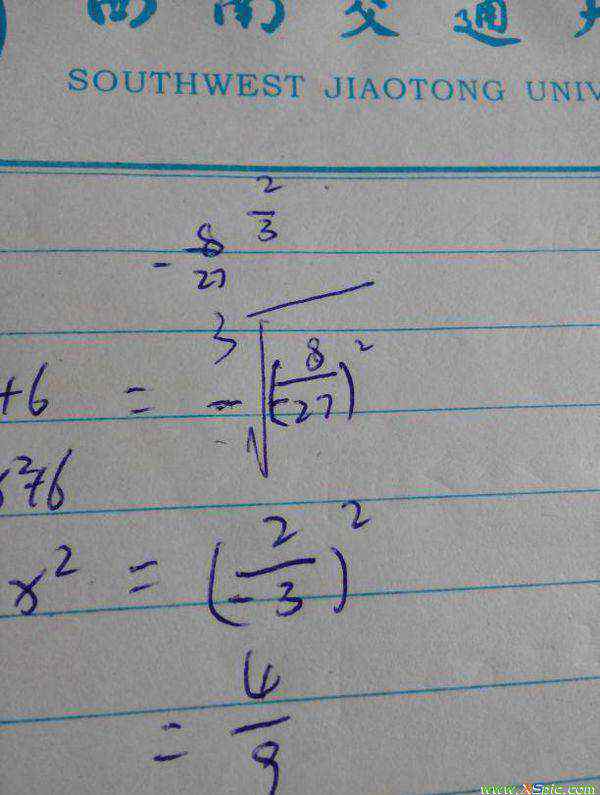 西南交通
SOUTHWEST JIAOTONG UNIV
2/3
- 8/27
+6 = - ∛(8/-27)²
²+6
x² = (2/-3)²
= 4/9
www.XSpic.com